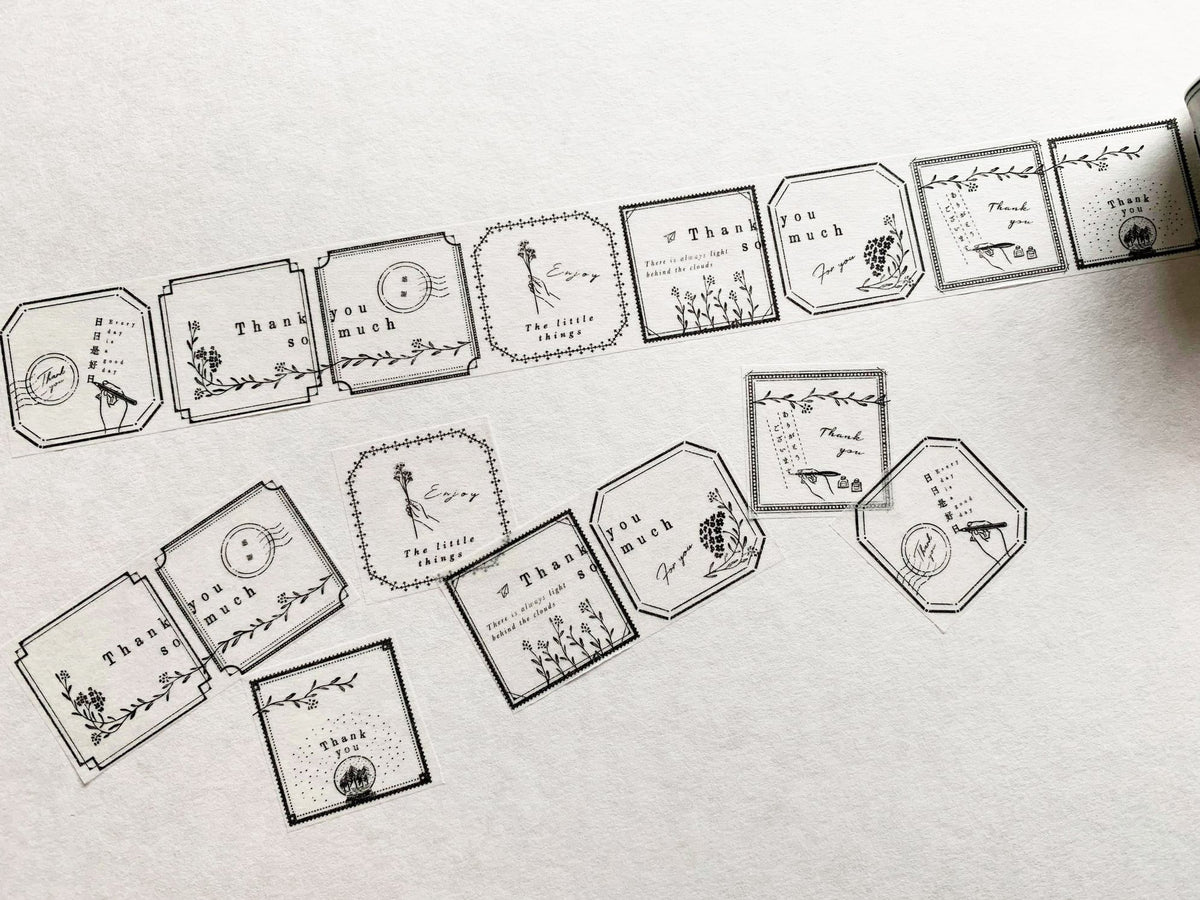 日日是好日
Every
day
is
a
good
day
Thank
you
Thank
so
you
much
Enjoy
The little
things
Thank
so
There is always light
behind the clouds
you
much
For you
ありがとう
ございます
Thank
you
Thank
you
Thank
so
you
much
Enjoy
The little
things
Thank
so
There is always light
behind the clouds
you
much
For you
ありがとう
ございます
Thank
you
日日是好日
Every
day
is
a
good
day
Thank
you
Thank
you